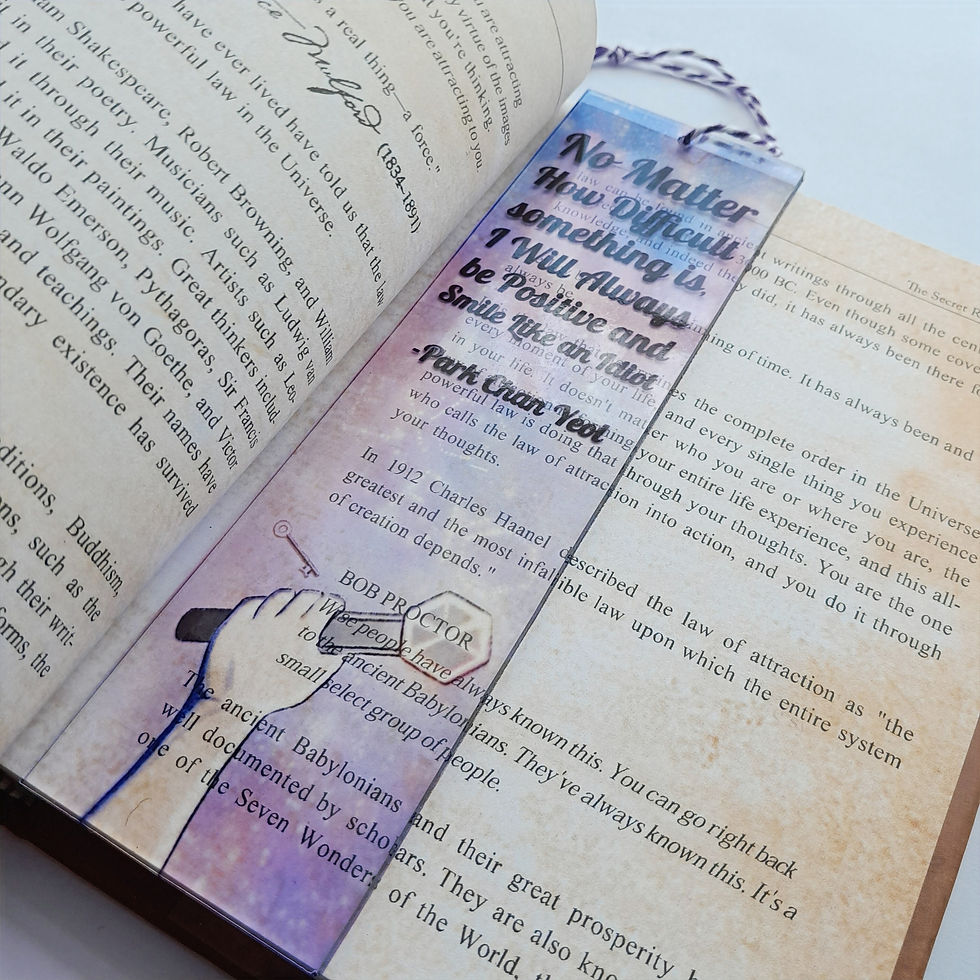 are attracting
virtue of the images
you're thinking.
you are attracting to you
a real thing—a force."
Mulford (1834–1891)
have ever lived have told us that the law
powerful law in the Universe.
am Shakespeare, Robert Browning, and William
in their poetry. Musicians such as Ludwig van
it through their music. Artists such as Leo-
it in their paintings. Great thinkers includ-
Waldo Emerson, Pythagoras, Sir Francis
nn Wolfgang von Goethe, and Victor
and teachings. Their names have
ndary existence has survived
ditions, Buddhism,
ons, such as the
gh their writ-
forms, the
No Matter
How Difficult
something is,
I Will Always
be Positive and
Smile Like an Idiot
-Park Chan Yeol
The Secret R
law can be found in ancient writings through all the cent
BC. Even though some cove
knowledge, and indeed the did, it has always been there
always be ning of time. It has always been and
es the complete order in the Universe,
every moment of your life and every single thing you experience
in your life. It doesn't matter who you are or where you are, the
your entire life experience, and this all-
powerful law is doing that through your thoughts. You are the one
who calls the law of attraction into action, and you do it through
your thoughts.
In 1912 Charles Haanel described the law of attraction as "the
greatest and the most infallible law upon which the entire system
of creation depends."
BOB PROCTOR
Wise people have always known this. You can go right back
to the ancient Babylonians. They've always known this. It's a
small select group of people.
The ancient Babylonians and their great prosperity
well documented by scholars. They are also kno
one of the Seven Wonders of the World,